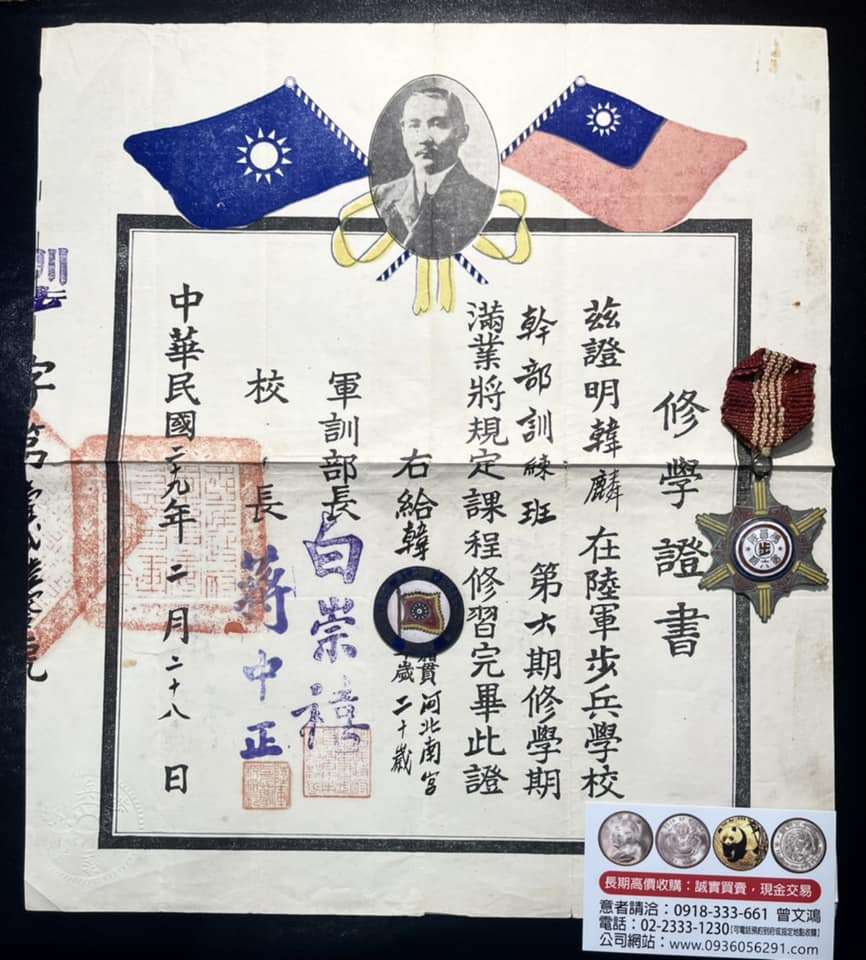 修學證書
茲證明韓麟在陸軍步兵學校
幹部訓練班第六期修學期
滿業將規定課程修習完畢此證
右給韓
籍貫河北南宮
年歲二十歲
軍訓部長白崇禧
校長蔣中正
中華民國二十九年二月二十八日
訓
字第
號
步
長期高價收購：誠實買賣，現金交易
意者請洽：0918-333-661 曾文鴻
電話：02-2333-1230【可電話預約到府或指定地點收購】
公司網站：www.0936056291.com